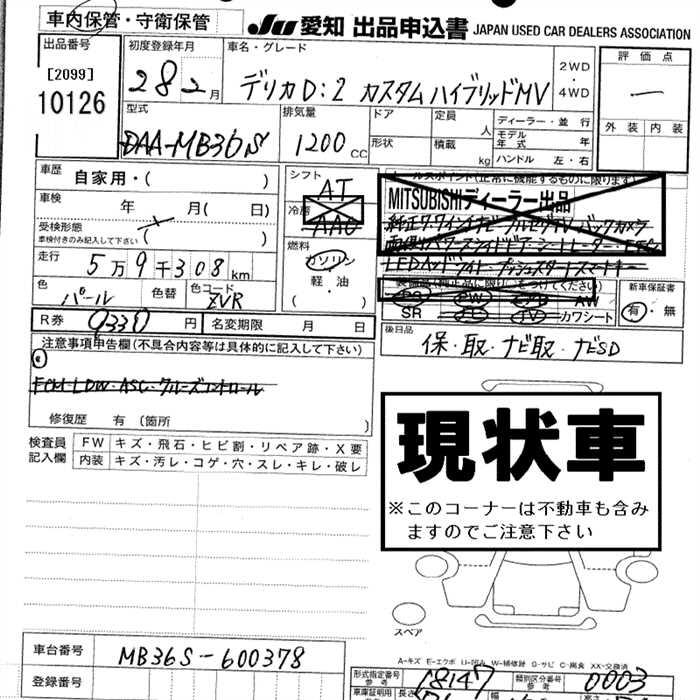 車内保管・守衛保管
JU 愛知 出品申込書 JAPAN USED CAR DEALERS ASSOCIATION
出品番号
[2099]
10126
初度登録年月
28 2月
車名・グレード
デリカD:2 カスタムハイブリッドMV
2WD
・
4WD
評価点
―
外装 内装
型式
DAA-MB36S
排気量
1200 cc
ドア
形状
定員 人
積載 kg
ディーラー・並行
モデル年式 年
ハンドル 左・右
車歴
自家用・( )
車検
年 月( 日)
受検形態
車検付きのみ記入して下さい ( )
走行
5万9千308km
色
パール
色替
色コード
ZVR
シフト
AT
冷房
AAC
燃料
ガソリン
軽・油
( )
セールスポイント(正常に機能するものに限ります)
MITSUBISHIディーラー出品
LEDヘッドライト プッシュスタート スマートキー
装備品(純正品に限り○をつけてください)
PS PW AW
SR TV カワシート
新車保証書
有・無
R券 9330 円
名変期限 月 日
後日品
保・取・ナビ取・ナビSD
注意事項申告欄(不具合内容等は具体的に記入して下さい)
FCM LDW ASC クルーズコントロール
修復歴 有 (箇所 )
検査員
記入欄
FW キズ・飛石・ヒビ割・リペア跡・X要
内装 キズ・汚レ・コゲ・穴・スレ・キレ・破レ
現状車
※このコーナーは不動車も含み
ますのでご注意下さい
スペア
A-キズ E-エクボ U-凹み W-補修跡 S-サビ C-腐食 XX-交換済
車台番号
MB36S-600378
登録番号
形式指定番号
参考
18147
類別区分番号
参考
0003
車庫証明用
参考
長さ
幅
高さ